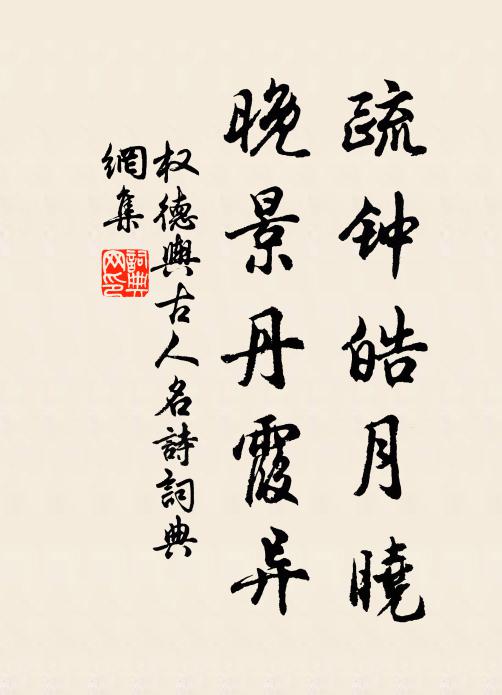 疏钟皓月曉
晚景丹霞异
权德輿古人名詩詞典
網集
詞典
网印